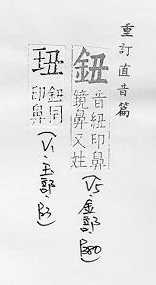 重訂直音篇
鈕
音紐印鼻
鏡鼻又姓
(V5·金部·B80
㺲
鈕同
印鼻
(V1·玉部·B3)